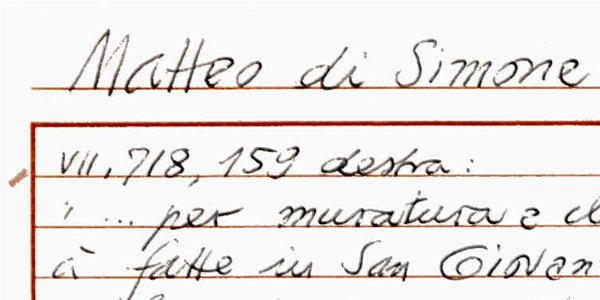 Matteo di Simone
VII, 718, 159 destra:
" ... per muratura e
à fatte in San Giovan